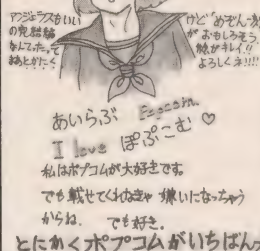 アンジェラスもいい
の完結編
なんてたって
まあとにかく
けど「めぞん一刻
が おもしろそう。
絵がキレイ!!
よろしくネ!!!!
あいらぶ Popcom.
I love ぽぷこむ ♡
私はポプコムが大好きです。
でも載せてくれなきゃ 嫌いになっちゃう
からね. でも好き.
とにかくポプコムがいちばんっ